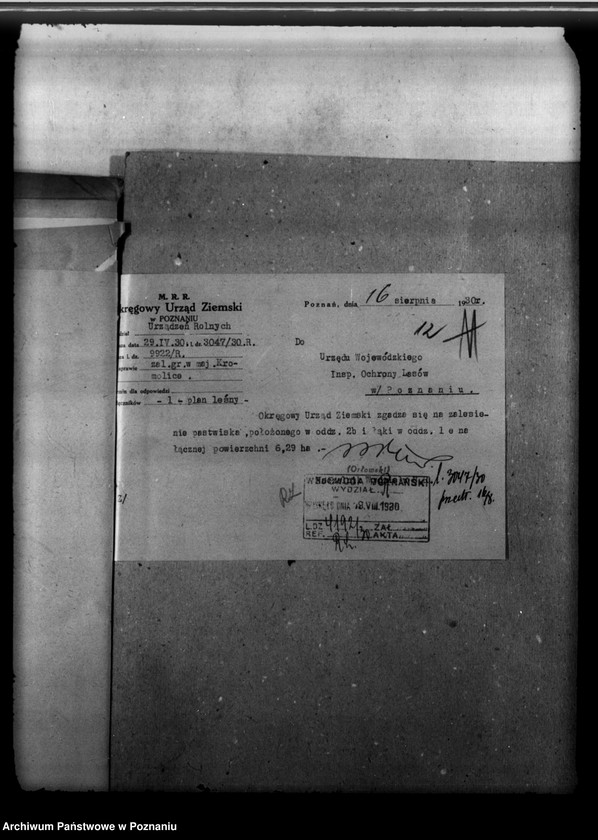 M. R. R.
kręgowy Urząd Ziemski
w POZNANIU
Urządzeń Rolnych
data 29.IV.30. l. dz. 3047/30.R.
l. dz. 2922/R.
zal.gr.w maj.Kro-
molice .
dla odpowiedzi
- 1 - plan leśny -
Poznań, dnia 16 sierpnia 1930r.
12
Do
Urzędu Wojewódzkiego
Insp. Ochrony Lasów
w/ Poznaniu.
Okręgowy Urząd Ziemski zgadza się na zalesie-
nie pastwiska, położonego w oddz. 2b i łąki w oddz. 1 e na
łącznej powierzchni 6,29 ha .-
(Orłowski)
3047/30
WYDZIAŁ
18.VIII.1930
L.DZ. 4192/30 ZAŁ.
REF. AKTA
Archiwum Państwowe w Poznaniu